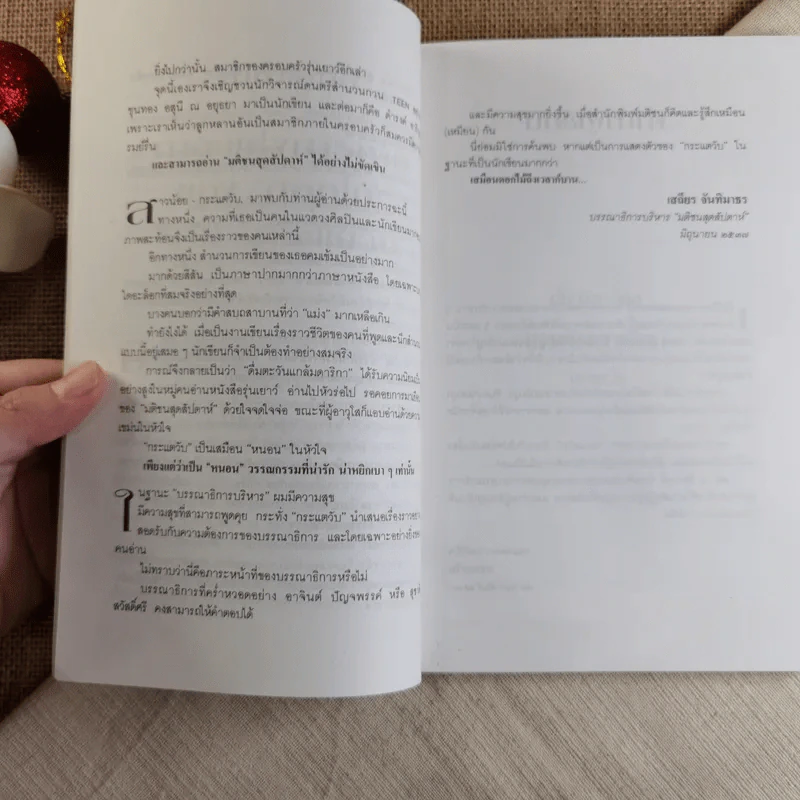 ยิ่งไปกว่านั้น สมาชิกของครอบครัวรุ่นเยาว์อีกเล่า
จุดนี้เองเราจึงเชิญชวนนักวิจารณ์ดนตรีสำนวนกวน TEEN
ขุนทอง อสุนี ณ อยุธยา มาเป็นนักเขียน และต่อมาก็คือ ดำรงค์
เพราะเราเห็นว่าลูกหลานอันเป็นสมาชิกภายในครอบครัวก็สมควรมี
รมย์รื่น
และสามารถอ่าน "มติชนสุดสัปดาห์" ได้อย่างไม่ขัดเขิน
สาวน้อย - กระแตวับ. มาพบกับท่านผู้อ่านด้วยประการฉะนี้
ทางหนึ่ง ความที่เธอเป็นคนในแวดวงศิลปินและนักเขียนมาก่อน
ภาพสะท้อนจึงเป็นเรื่องราวของคนเหล่านี้
อีกทางหนึ่ง สำนวนการเขียนของเธอคมเข้มเป็นอย่างมาก
มากด้วยสีสัน เป็นภาษาปากมากกว่าภาษาหนังสือ โดยเฉพาะ
ไดอะล็อกที่สมจริงอย่างที่สุด
บางคนบอกว่ามีคำสบถสาบานที่ว่า "แม่ง" มากเหลือเกิน
ทำยังไงได้ เมื่อเป็นงานเขียนเรื่องราวชีวิตของคนที่พูดและนึกสำนวน
แบบนี้อยู่เสมอ ๆ นักเขียนก็จำเป็นต้องทำอย่างสมจริง
การณ์จึงกลายเป็นว่า "ดื่มตะวันแกล้มดาริกา" ได้รับความนิยม
อย่างสูงในหมู่คนอ่านหนังสือรุ่นเยาว์ อ่านไปหัวร่อไป รอคอยการมา
ของ "มติชนสุดสัปดาห์" ด้วยใจจดใจจ่อ ขณะที่ผู้อาวุโสก็แอบอ่านด้วยความ
เขม่นในหัวใจ
"กระแตวับ" เป็นเสมือน "หนอน" ในหัวใจ
เพียงแต่ว่าเป็น "หนอน" วรรณกรรมที่น่ารัก น่าหยิกเบา ๆ เท่านั้น
ในฐานะ "บรรณาธิการบริหาร" ผมมีความสุข
มีความสุขที่สามารถพูดคุย กระทั่ง "กระแตวับ" นำเสนอเรื่องราว
สอดรับกับความต้องการของบรรณาธิการ และโดยเฉพาะอย่างยิ่ง
คนอ่าน
ไม่ทราบว่านี่คือภาระหน้าที่ของบรรณาธิการหรือไม่
บรรณาธิการที่คร่ำหวอดอย่าง อาจินต์ ปัญจพรรค์ หรือ
สวัสดิ์ศรี คงสามารถให้คำตอบได้
และมีความสุขมากยิ่งขึ้น เมื่อสำนักพิมพ์มติชนก็คิดและรู้สึกเหมือน
(เหมียน) กัน
นี่ย่อมมิใช่การค้นพบ หากแต่เป็นการแสดงตัวของ "กระแตวับ" ใน
ฐานะที่เป็นนักเขียนมากกว่า
เสมือนดอกไม้ถึงเวลาก็บาน...
เสถียร จันทิมาธร
บรรณาธิการบริหาร "มติชนสุดสัปดาห์"
มิถุนายน ๒๕๓๗